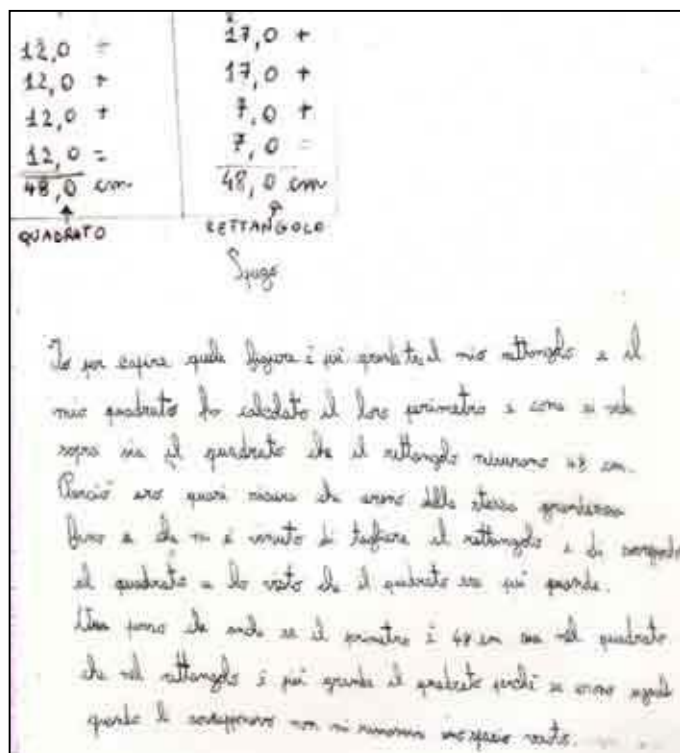 12,0 =
12,0 +
12,0 +
12,0 =
48,0 cm
QUADRATO
17,0 +
17,0 +
7,0 +
7,0 =
48,0 cm
RETTANGOLO
Io per capire quale figura è più grande tra il mio rettangolo e il
mio quadrato ho calcolato il loro perimetro e come si vede
sopra sia il quadrato che il rettangolo misurano 48 cm.
Perciò ero quasi sicura che erano della stessa grandezza
fino a che mi è venuto di tagliare il rettangolo e di
il quadrato e ho visto che il quadrato era più grande.
penso che anche se il perimetro è 48 cm sia nel quadrato
che nel rettangolo è più grande il quadrato perché se erano uguali
quando li sovrapponevo non mi rimaneva uno spazio vuoto.